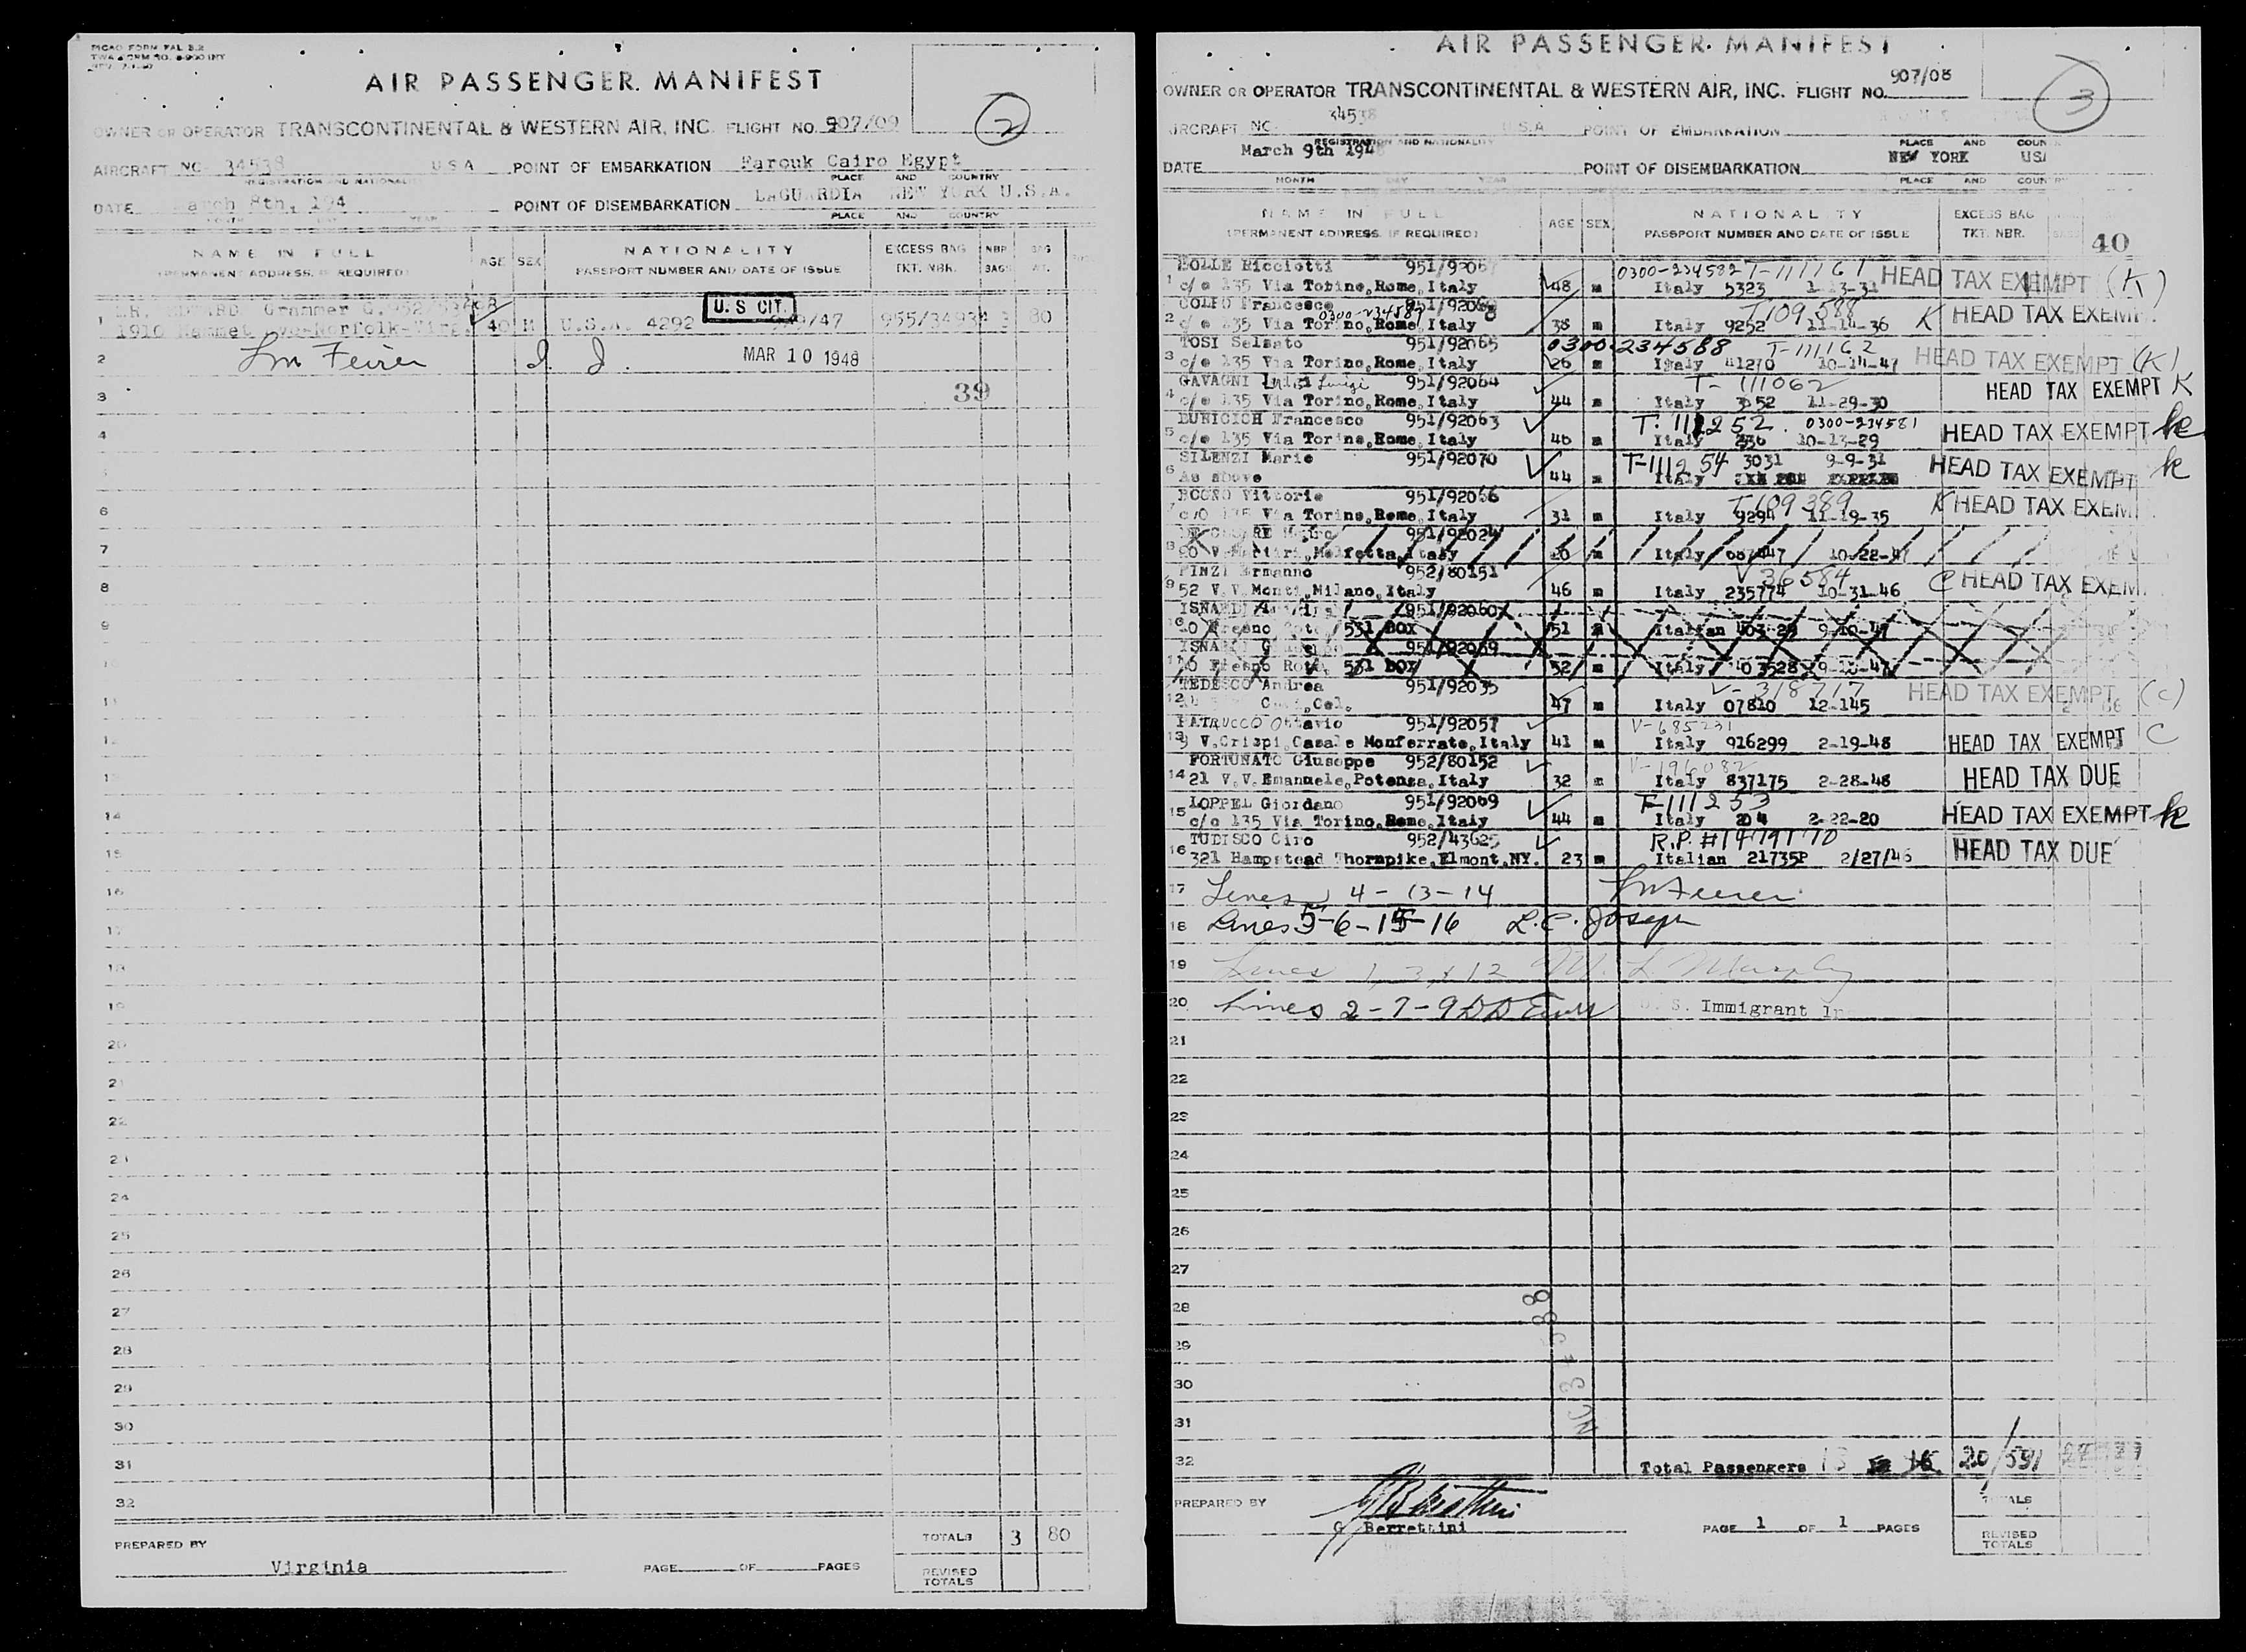 PICAO FORM FAL 2.2
AIR PASSENGER MANIFEST
2
OWNER OR OPERATOR TRANSCONTINENTAL & WESTERN AIR, INC. FLIGHT NO. 907/09
AIRCRAFT NC. 34538 USA POINT OF EMBARKATION Farouk Cairo Egypt
REGISTRATION AND NATIONALITY PLACE AND COUNTRY
DATE March 8th, 194 POINT OF DISEMBARKATION LAGUARDIA NEW YORK U.S.A.
MONTH DAY YEAR PLACE AND COUNTRY
NAME IN FULL AGE SEX NATIONALITY EXCESS BAG NBR. BAG
(PERMANENT ADDRESS, IF REQUIRED) PASSPORT NUMBER AND DATE OF ISSUE TKT. NBR. BAGS WT.
Grammer G.
1 1910 Hammet Ave-Norfolk-Virg 40 M U.S.A. 4292 /47 U.S CIT. 955/34934 3 80
2 I. I. MAR 10 1948
3 39
4
5
6
7
8
9
10
11
12
13
14
15
16
17
18
19
20
20
21
22
23
24
25
26
27
28
29
30
31
32
PREPARED BY TOTALS 3 80
Virginia PAGE OF PAGES REVISED TOTALS
AIR PASSENGER MANIFEST
3
OWNER OR OPERATOR TRANSCONTINENTAL & WESTERN AIR, INC. FLIGHT NO. 907/08
AIRCRAFT NC. 34538 U.S.A POINT OF EMBARKATION
REGISTRATION AND NATIONALITY PLACE AND COUNTRY
DATE March 9th 194 POINT OF DISEMBARKATION NEW YORK USA
MONTH DAY YEAR PLACE AND COUNTRY
NAME IN FULL AGE SEX NATIONALITY EXCESS BAG
(PERMANENT ADDRESS, IF REQUIRED) PASSPORT NUMBER AND DATE OF ISSUE TKT. NBR. 40
BOLLE Ricciotti 0300-234582 T-111161 HEAD TAX EXEMPT (K)
1 c/o 135 Via Torino, Rome, Italy 48 m Italy 5323 1-13-31
COLFO Francesco T109588 K HEAD TAX EXEMP
2 c/o 135 Via Torino, Rome, Italy 38 m Italy 9252 11-14-36
TOSI Selzato 951/92065 0300-234588 T-111162 HEAD TAX EXEMPT (K)
3 c/o 135 Via Torino, Rome, Italy 26 m Italy 41270 10-14-47
GAVAGNI Luigi 951/92064 T-111062 HEAD TAX EXEMPT K
4 c/o 135 Via Torino, Rome, Italy 44 m Italy 3052 11-29-30
DUNICICH Francesco 951/92063 T. 111252. 0300-234581 HEAD TAX EXEMPT k
5 c/o 135 Via Torino, Rome, Italy 46 m Italy 236 10-13-29
SILENZI Mario 951/92070 T-111254 3031 9-9-31 HEAD TAX EXEMPT k
6 As above 44 m Italy
Vittorio 951/92066 T109389 K HEAD TAX EXEM
7 c/o 135 Via Torino, Rome, Italy 31 m Italy 9294 11-19-35
951/92024
8 Molfetta, Italy 20 m Italy 10-22-47
FINZI Ermanno 952/80151 V 36584 C HEAD TAX EXEM
9 52 V.V. Monti, Milano, Italy 46 m Italy 235774 10-31-46
ISNARDI 951/92060
10 531 BOX 51 m Italian 9-10-47
ISNARDI 951/92059
11 531 BOX 52 m Italy 403528 9-10-47
TEDESCO Andrea 951/92035 V-318717 HEAD TAX EXEMPT (C)
12 Cal. 47 m Italy 07810 12-145
PATRUCCO Ottavio 951/92057 V-685231 HEAD TAX EXEMPT C
13 9 V.Crispi, Casale Monferrato, Italy 41 m Italy 916299 2-19-48
FORTUNATO Giuseppe 952/80152 V-196082 HEAD TAX DUE
14 21 V.V. Emanuele, Potenza, Italy 32 m Italy 837175 2-28-48
LOPPEL Giordano 951/92069 T-111253 HEAD TAX EXEMPT k
15 c/o 135 Via Torino, Rome, Italy 44 m Italy 204 2-22-20
TUDISCO Ciro 952/43625 R.P. # HEAD TAX DUE
16 321 Hampstead Thornpike, Elmont, NY. 23 m Italian 21735P 2/27/46
17 Lines 4 - 13 - 14
18 Lines 5-6-15-16 L.C. Joseph
19 Lines 1, 3, & 12 M. L. Murphy
20 Lines 2 - 7 - 9 U.S. Immigrant In
21
22
23
24
25
26
27
28
29
30
31
32 Total Passengers 13 20/591
PREPARED BY TOTALS
G Berrettini PAGE 1 OF 1 PAGES REVISED TOTALS